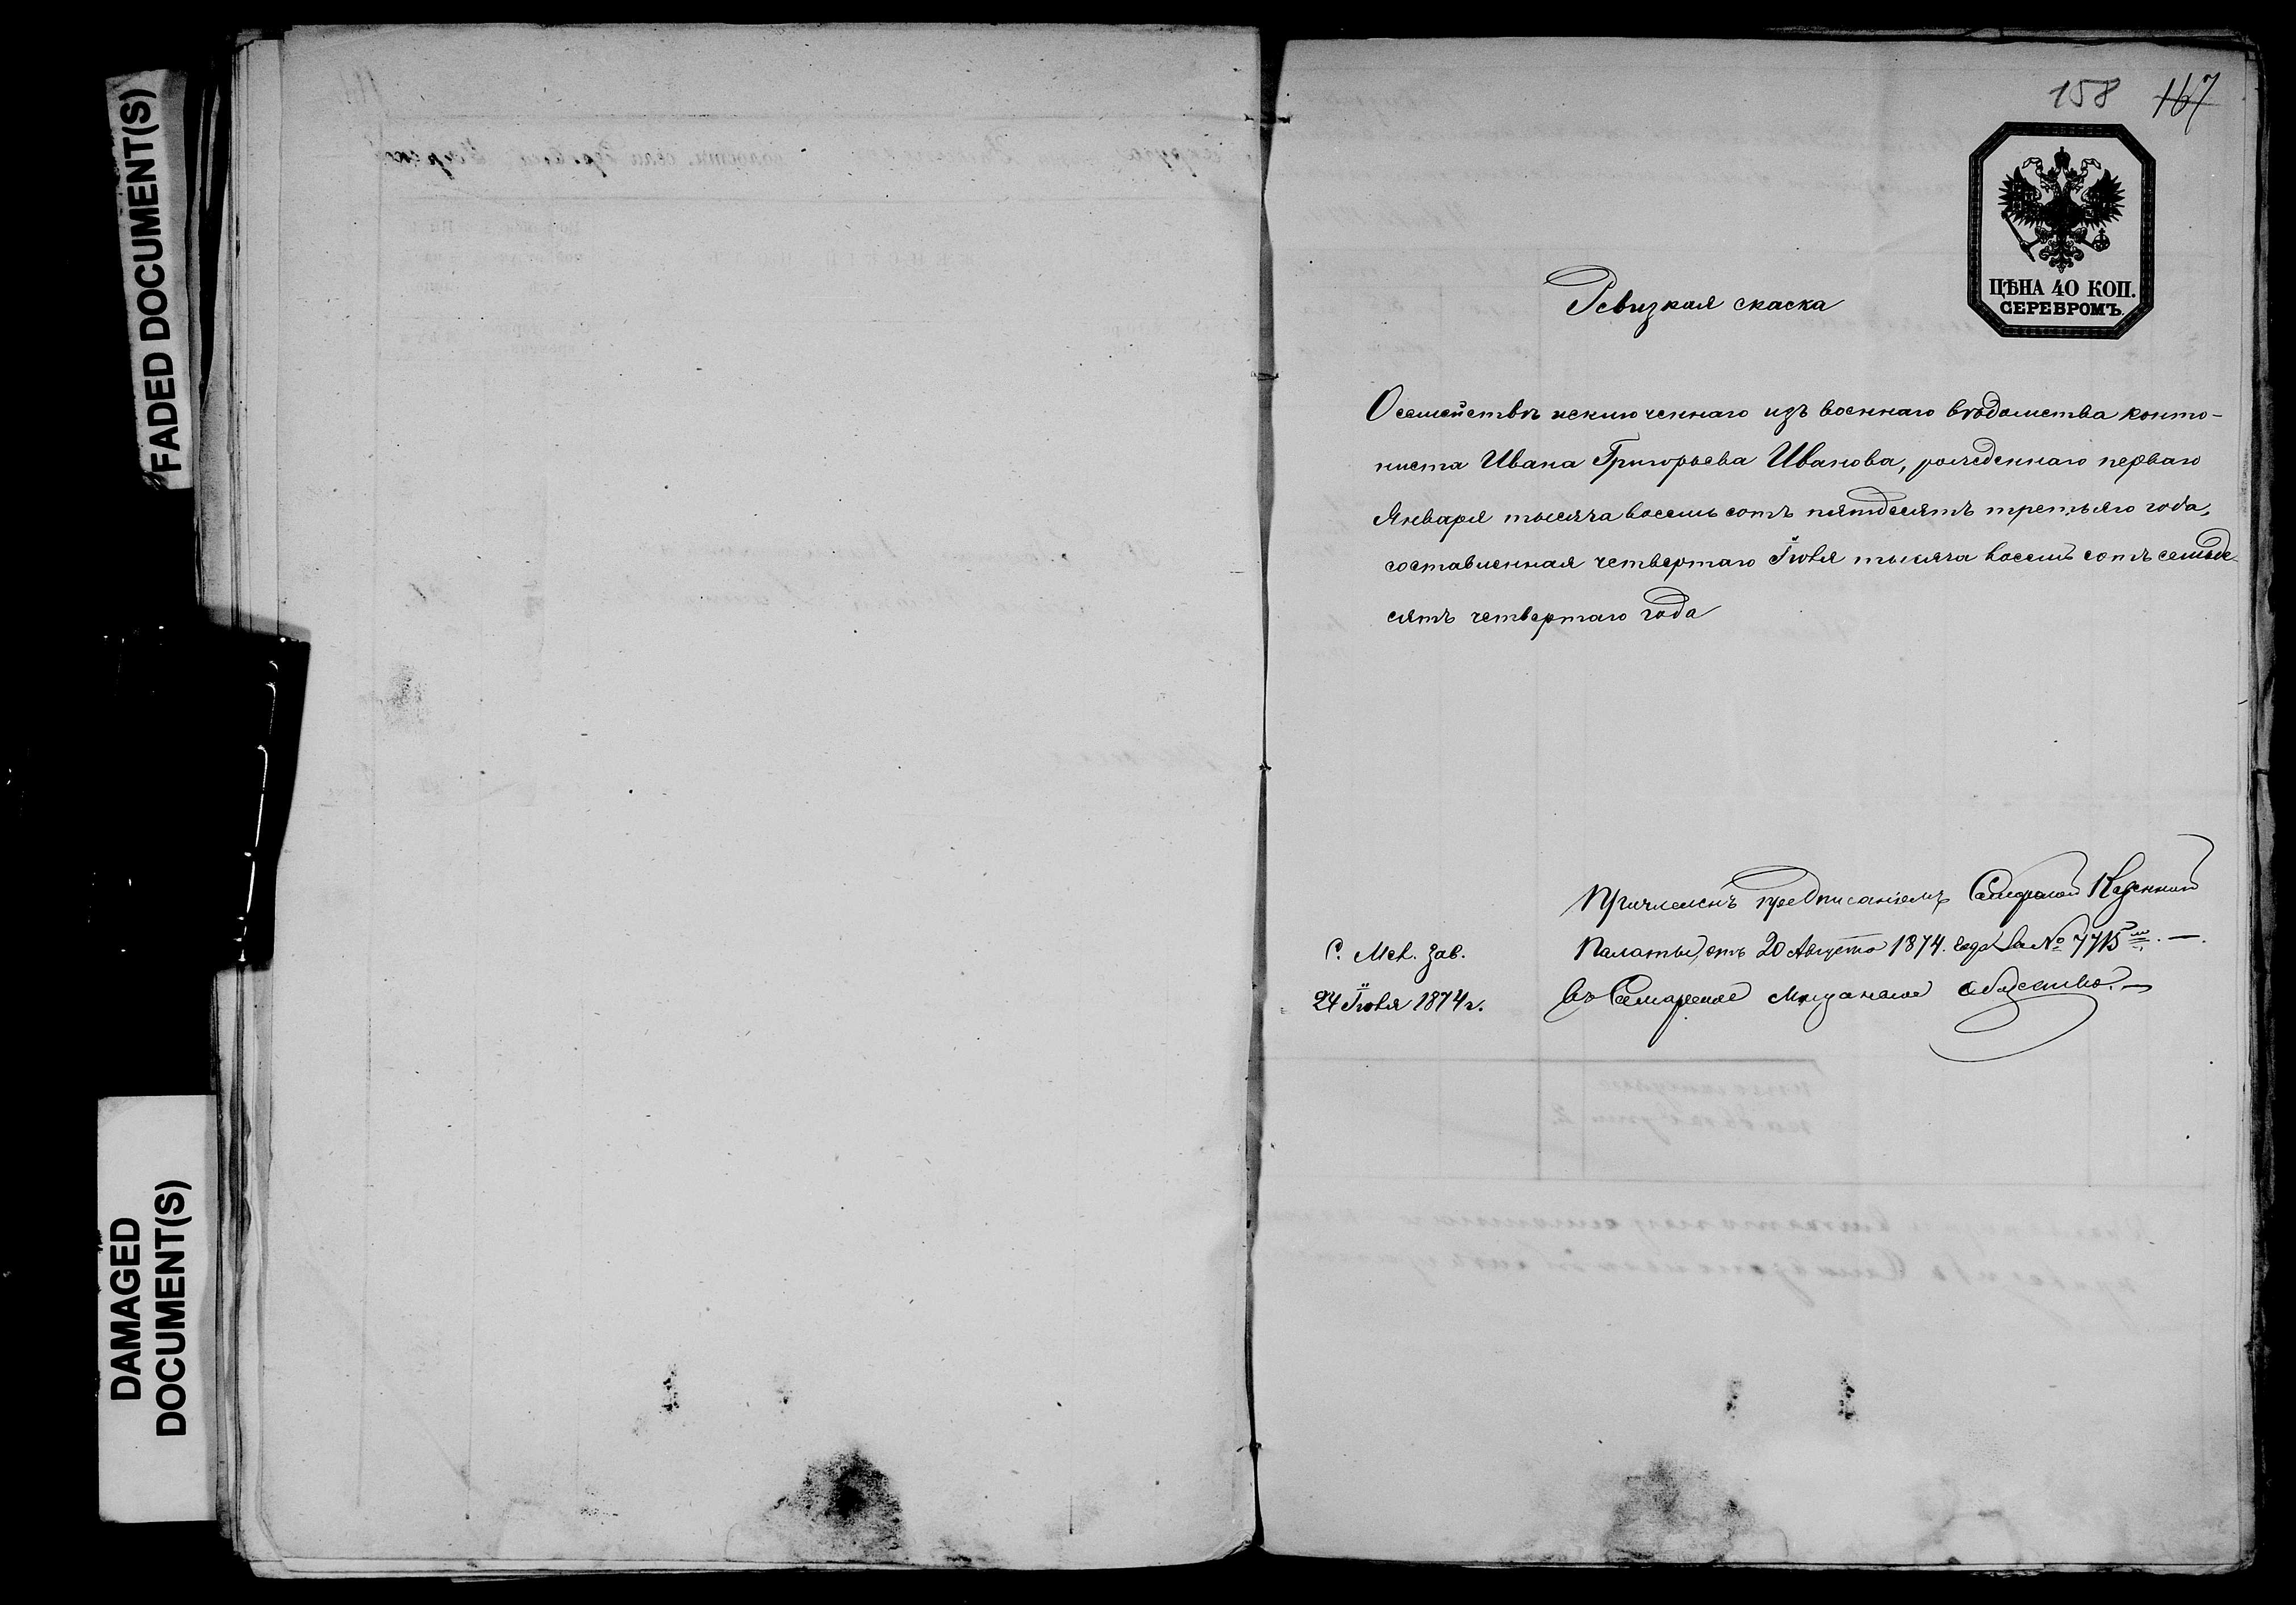 FADED DOCUMENT(S)
DAMAGED
DOCUMENT(S)
158 167
ЦѢНА 40 КОП.
СЕРЕБРОМЪ.
Ревизкая скаска
О семействѣ исключеннаго изъ военнаго вѣдомства канто-
ниста Ивана Григорьева Иванова, рожденнаго перваго
Января тысяча восемь сотъ пятдесятъ третьяго года,
составленная четвертаго Іюня тысяча восемь сотъ семьде-
сятъ четвертаго года
Причисленъ предписаніемъ Самарской Казенной
Палаты, отъ 20 Августа 1874. года за № 7715
въ Самарское Мещанское общество.
С. Мел. Зав.
24 Іюня 1874 г.